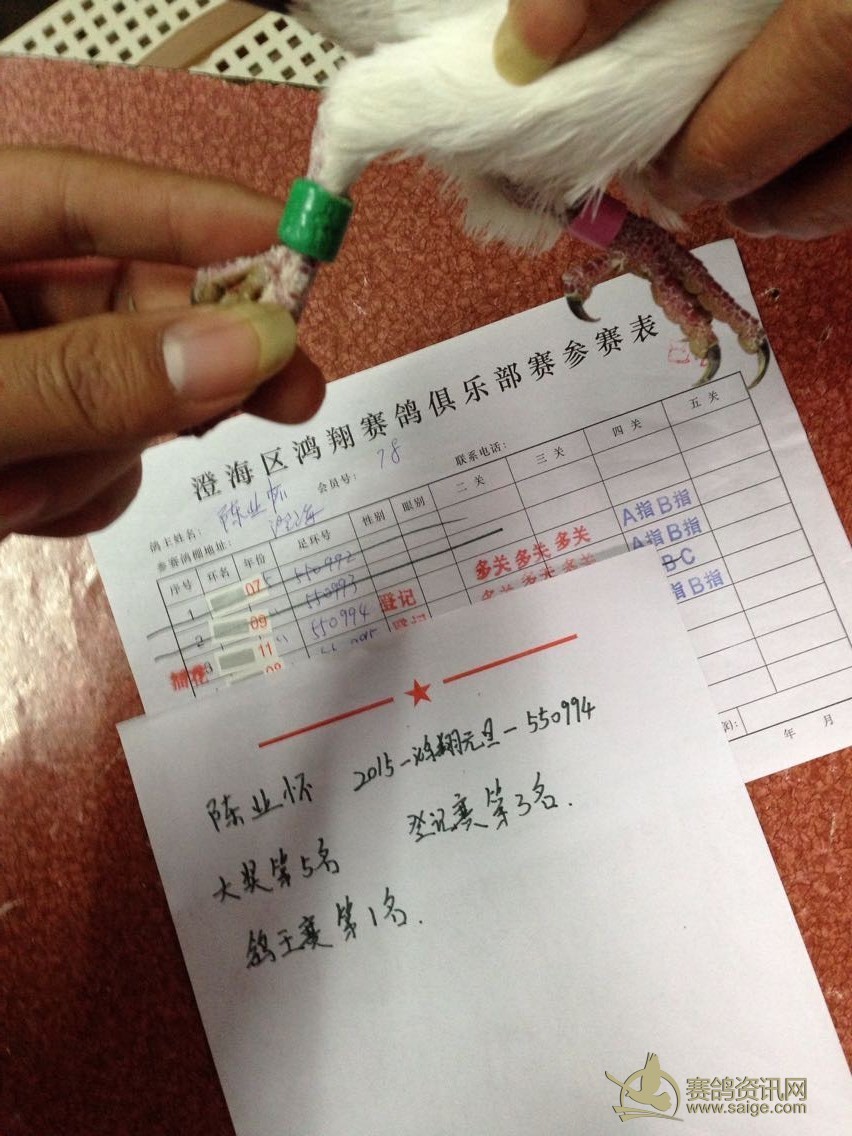 澄海区鸿翔赛鸽俱乐部赛参赛表
鸽主姓名: 陈业怀 会员号: 78 联系电话:
参赛鸽棚地址: 澄海
序号 环名 年份 足环号 性别 眼别 二关 三关 四关 五关
1 07 550992
2 09 550993 多关 多关 多关 A指 B指
3 11 550994 登记 A指 B指
B C
指 B指
年 月
陈业怀 2015-鸿翔元旦-550994
大奖第5名 登记赛第3名.
鸽王赛第1名.
赛鸽资讯网
www.saige.com